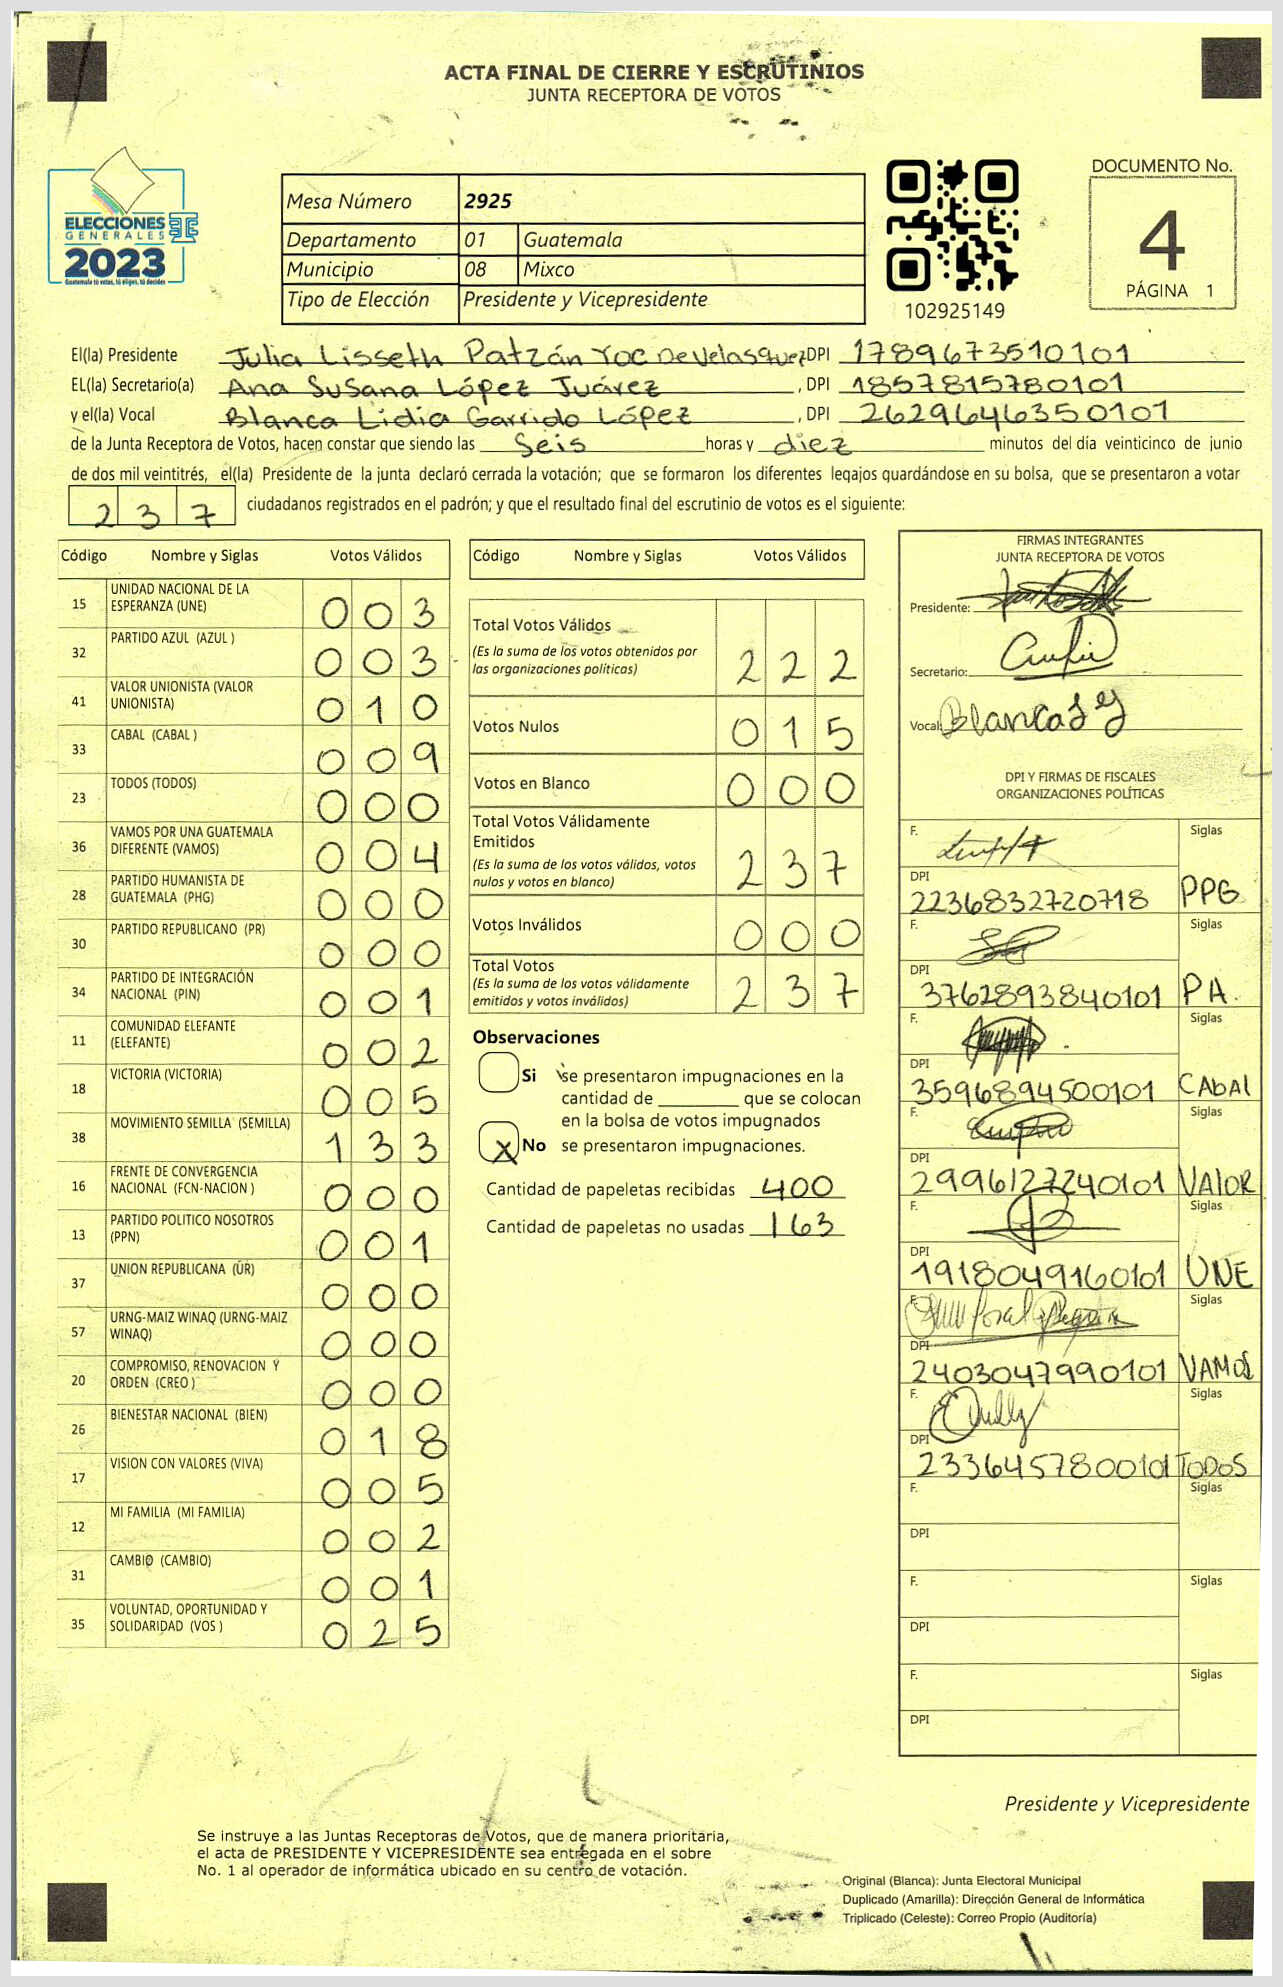 ACTA FINAL DE CIERRE Y ESCRUTINIOS
JUNTA RECEPTORA DE VOTOS
ELECCIONES
GENERALES
2023
Guatemala tú votas, tú eliges, tú decides
Mesa Número 2925
Departamento 01 Guatemala
Municipio 08 Mixco
Tipo de Elección Presidente y Vicepresidente
102925149
DOCUMENTO No.
4
PÁGINA 1
El(la) Presidente Julia Lisseth Patzán Yoc De Velasquez DPI 1789673510101
EL(la) Secretario(a) Ana Susana López Juárez , DPI 1857815780101
y el(la) Vocal Blanca Lidia Garrido López , DPI 2629646350101
de la Junta Receptora de Votos, hacen constar que siendo las Seis horas y diez minutos del día veinticinco de junio
de dos mil veintitrés, el(la) Presidente de la junta declaró cerrada la votación; que se formaron los diferentes legajos guardándose en su bolsa, que se presentaron a votar
237 ciudadanos registrados en el padrón; y que el resultado final del escrutinio de votos es el siguiente:
Código Nombre y Siglas Votos Válidos
15 UNIDAD NACIONAL DE LA ESPERANZA (UNE) 003
32 PARTIDO AZUL (AZUL ) 003
41 VALOR UNIONISTA (VALOR UNIONISTA) 010
33 CABAL (CABAL ) 009
23 TODOS (TODOS) 000
36 VAMOS POR UNA GUATEMALA DIFERENTE (VAMOS) 004
28 PARTIDO HUMANISTA DE GUATEMALA (PHG) 000
30 PARTIDO REPUBLICANO (PR) 000
34 PARTIDO DE INTEGRACIÓN NACIONAL (PIN) 001
11 COMUNIDAD ELEFANTE (ELEFANTE) 002
18 VICTORIA (VICTORIA) 005
38 MOVIMIENTO SEMILLA (SEMILLA) 133
16 FRENTE DE CONVERGENCIA NACIONAL (FCN-NACION ) 000
13 PARTIDO POLITICO NOSOTROS (PPN) 001
37 UNION REPUBLICANA (UR) 000
57 URNG-MAIZ WINAQ (URNG-MAIZ WINAQ) 000
20 COMPROMISO, RENOVACION Y ORDEN (CREO ) 000
26 BIENESTAR NACIONAL (BIEN) 018
17 VISION CON VALORES (VIVA) 005
12 MI FAMILIA (MI FAMILIA) 002
31 CAMBIO (CAMBIO) 001
35 VOLUNTAD, OPORTUNIDAD Y SOLIDARIDAD (VOS ) 025
Código Nombre y Siglas Votos Válidos
Total Votos Válidos
(Es la suma de los votos obtenidos por
las organizaciones políticas) 222
Votos Nulos 015
Votos en Blanco 000
Total Votos Válidamente
Emitidos
(Es la suma de los votos válidos, votos
nulos y votos en blanco) 237
Votos Inválidos 000
Total Votos
(Es la suma de los votos válidamente
emitidos y votos inválidos) 237
Observaciones
Si se presentaron impugnaciones en la
cantidad de ________ que se colocan
en la bolsa de votos impugnados
X No se presentaron impugnaciones.
Cantidad de papeletas recibidas 400
Cantidad de papeletas no usadas 163
FIRMAS INTEGRANTES
JUNTA RECEPTORA DE VOTOS
Presidente:
Secretario:
Vocal: Blanca L G
DPI Y FIRMAS DE FISCALES
ORGANIZACIONES POLÍTICAS
F. Siglas
DPI 2236832720718 PPG
F. Siglas
DPI 3762893840101 PA.
F. Siglas
DPI 3596894500101 CAbAl
F. Siglas
DPI 2996127240101 VAlOR
F. Siglas
DPI 1918049160101 UNE
F. Siglas
DPI 2403047990101 VAMOS
F. Siglas
DPI 2336457800101 TODOS
F. Siglas
DPI
F. Siglas
DPI
F. Siglas
DPI
Presidente y Vicepresidente
Se instruye a las Juntas Receptoras de Votos, que de manera prioritaria,
el acta de PRESIDENTE Y VICEPRESIDENTE sea entregada en el sobre
No. 1 al operador de informática ubicado en su centro de votación.
Original (Blanca): Junta Electoral Municipal
Duplicado (Amarilla): Dirección General de Informática
Triplicado (Celeste): Correo Propio (Auditoría)